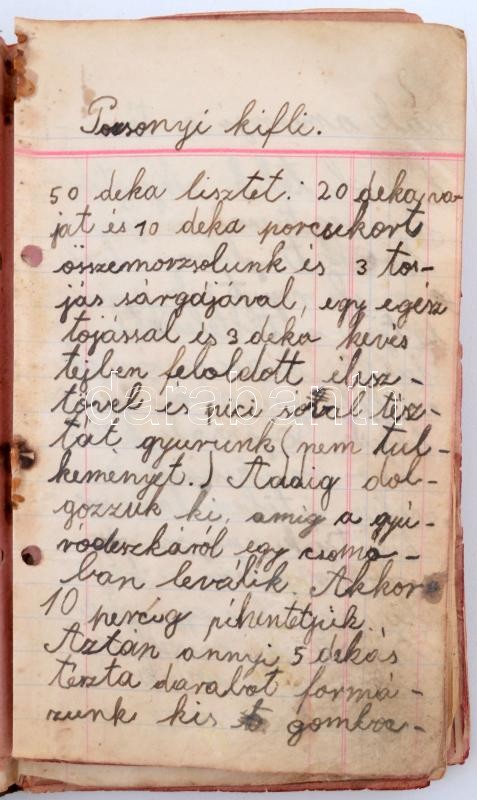 Pozsonyi kifli.
50 deka lisztet. 20 deka va-
ját és 10 deka porcukort
összemorzsolunk és 3 to-
jás sárgájával, egy egész
tojással és 3 deka kevés
tejben feloldott élisz-
tővel és pici sóval tész-
tát gyurunk (nem tul-
keményet.) Addig dol-
gozzuk ki, amig a gyú-
ródeszkáról egy csomó-
ban leválik. Akkor
10 percig pihentetjük
Aztán annyi 5 dekás
tészta darabot formá-
zunk kis gombóc-
darabanth